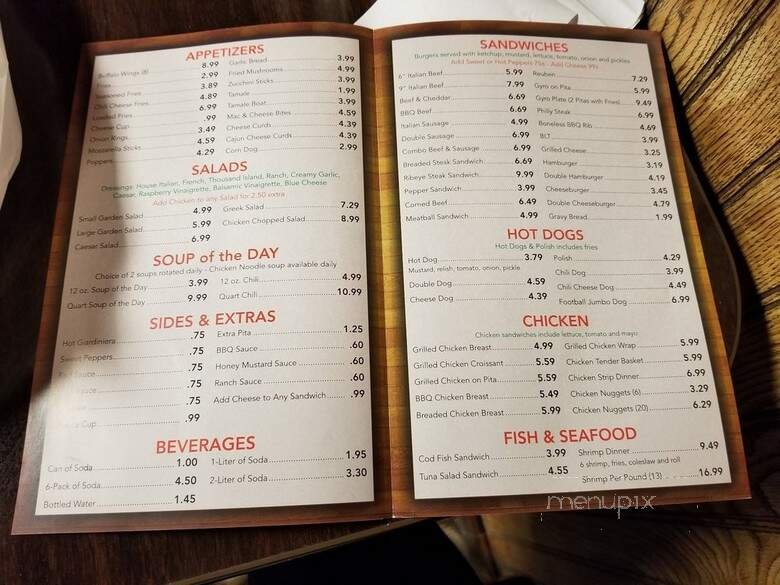 APPETIZERS
Buffalo Wings (8) 8.99
Fries 2.99
Seasoned Fries 3.89
Chili Cheese Fries 4.89
Loaded Fries 6.99
Cheese Cup .99
Onion Rings 3.49
Mozzarella Sticks 4.59
Poppers 4.29
Garlic Bread 3.99
Fried Mushrooms 4.99
Zucchini Sticks 3.99
Tamale 1.99
Tamale Boat 3.99
Mac & Cheese Bites 4.59
Cheese Curds 4.39
Cajun Cheese Curds 4.39
Corn Dog 2.99
SALADS
Dressings: House Italian, French, Thousand Island, Ranch, Creamy Garlic,
Caesar, Raspberry Vinaigrette, Balsamic Vinaigrette, Blue Cheese
Add Chicken to any Salad for 2.50 extra
Small Garden Salad 4.99
Large Garden Salad 5.99
Caesar Salad 6.99
Greek Salad 7.29
Chicken Chopped Salad 8.99
SOUP of the DAY
Choice of 2 soups rotated daily - Chicken Noodle soup available daily
12 oz. Soup of the Day 3.99
Quart Soup of the Day 9.99
12 oz. Chili 4.99
Quart Chili 10.99
SIDES & EXTRAS
Hot Giardiniera .75
Sweet Peppers .75
Sauce .75
Sauce .75
.75
Cup .99
Extra Pita 1.25
BBQ Sauce .60
Honey Mustard Sauce .60
Ranch Sauce .60
Add Cheese to Any Sandwich .99
BEVERAGES
Can of Soda 1.00
6-Pack of Soda 4.50
Bottled Water 1.45
1-Liter of Soda 1.95
2-Liter of Soda 3.30
SANDWICHES
Burgers served with ketchup, mustard, lettuce, tomato, onion and pickles
Add Sweet or Hot Peppers 75¢ - Add Cheese 99¢
6" Italian Beef 5.99
9" Italian Beef 7.99
Beef & Cheddar 6.69
BBQ Beef 6.69
Italian Sausage 4.99
Double Sausage 6.99
Combo Beef & Sausage 6.99
Breaded Steak Sandwich 6.69
Ribeye Steak Sandwich 9.99
Pepper Sandwich 3.99
Corned Beef 6.49
Meatball Sandwich 4.99
Reuben 7.29
Gyro on Pita 5.99
Gyro Plate (2 Pitas with Fries) 9.49
Philly Steak 6.99
Boneless BBQ Rib 4.69
BLT 3.99
Grilled Cheese 3.25
Hamburger 3.19
Double Hamburger 4.19
Cheeseburger 3.45
Double Cheeseburger 4.79
Gravy Bread 1.99
HOT DOGS
Hot Dogs & Polish includes fries
Hot Dog 3.79
Mustard, relish, tomato, onion, pickle
Double Dog 4.59
Cheese Dog 4.39
Polish 4.29
Chili Dog 3.99
Chili Cheese Dog 4.49
Football Jumbo Dog 6.99
CHICKEN
Chicken sandwiches include lettuce, tomato and mayo
Grilled Chicken Breast 4.99
Grilled Chicken Croissant 5.59
Grilled Chicken on Pita 5.59
BBQ Chicken Breast 5.49
Breaded Chicken Breast 5.99
Grilled Chicken Wrap 5.99
Chicken Tender Basket 5.99
Chicken Strip Dinner 6.99
Chicken Nuggets (6) 3.29
Chicken Nuggets (20) 6.29
FISH & SEAFOOD
Cod Fish Sandwich 3.99
Tuna Salad Sandwich 4.55
Shrimp Dinner 9.49
6 shrimp, fries, coleslaw and roll
Shrimp Per Pound (13) 16.99
menupix